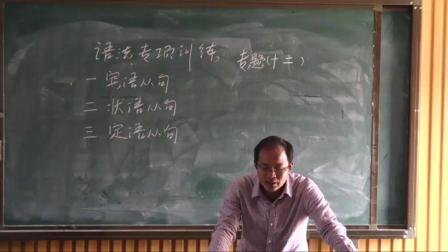 语法专项训练 专题(十二)
一 宾语从句
二 状语从句
三 定语从句